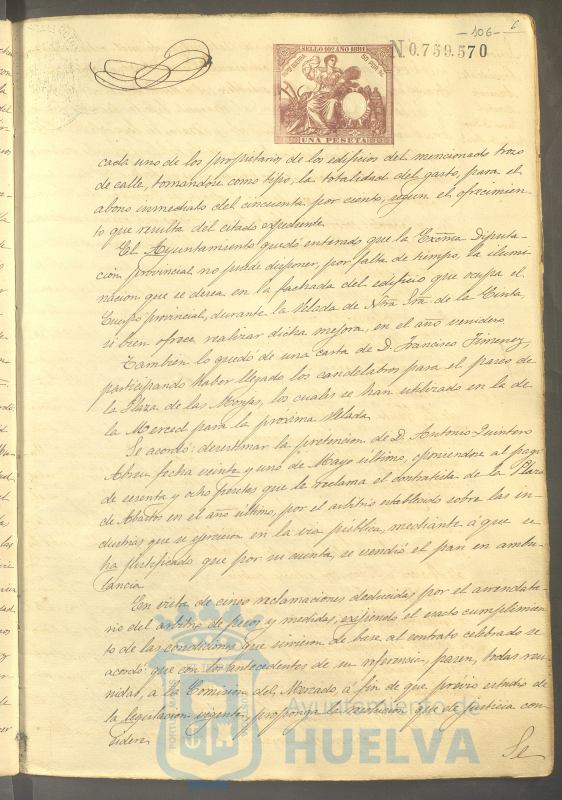 106 6
SELLO 10º AÑO 1881
N.0.759.570
UNA PESETA
cada uno de los propietarios de los edificios del mencionado trozo
de calle, tomandose como tipo, la totalidad del gasto, para el
abono inmediato del cincuenta por ciento, segun el ofrecimien-
to que resulta del citado expediente.
El Ayuntamiento quedó enterado que la Excma Diputa-
cion provincial no puede disponer, por falta de tiempo, la ilumi-
nacion que se desea en la fachada del edificio que ocupa el
Cuerpo provincial, durante la Velada de Ntra Sra de la Cinta,
si bien ofrece realizar dicha mejora, en el año venidero
Tambien lo quedó de una carta de D. Francisco Jimenez,
participando haber llegado los candelabros para el paseo de
la Plaza de las Monjas, los cuales se han utilizado en la de
la Merced para la proxima Velada.
Se acordó: desestimar la pretencion de D. Antonio Quintero
Abreu fecha veinte y uno de Mayo ultimo, oponiendose al pago
de sesenta y ocho pesetas que le reclama el contratista de la Plaza
de Abastos en el año ultimo, por el arbitrio establecido sobre las in-
dustrias que se ejercen en la via pública, mediante á que se
ha justificado que por su cuenta, se vendió el pan en ambu-
lancia.
En vista de cinco reclamaciones deducidas por el arrendata-
rio del arbitrio de pesos y medidas, exijiendo el exacto cumplimien-
to de las condiciones que sirvieron de base al contrato celebrado se
acordó: que con los antecedentes de su referencia, pasen, todas reu-
nidas, a la Comision del Mercado, á fin de que previo estudio de
la legislacion vigente, proponga la resolucion que de justicia con-
sidere.
Se
Ayuntamiento de
HUELVA